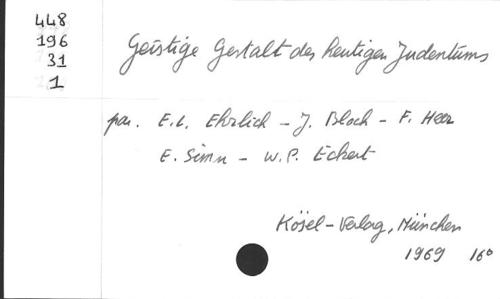 448
196
31
1
Geistige Gestalt des heutigen Judentums
par. E.L. Ehrlich - J. Bloch - F. Heer
E. Simn - W.P. Eckert
Kösel-Verlag, München
1969 16°